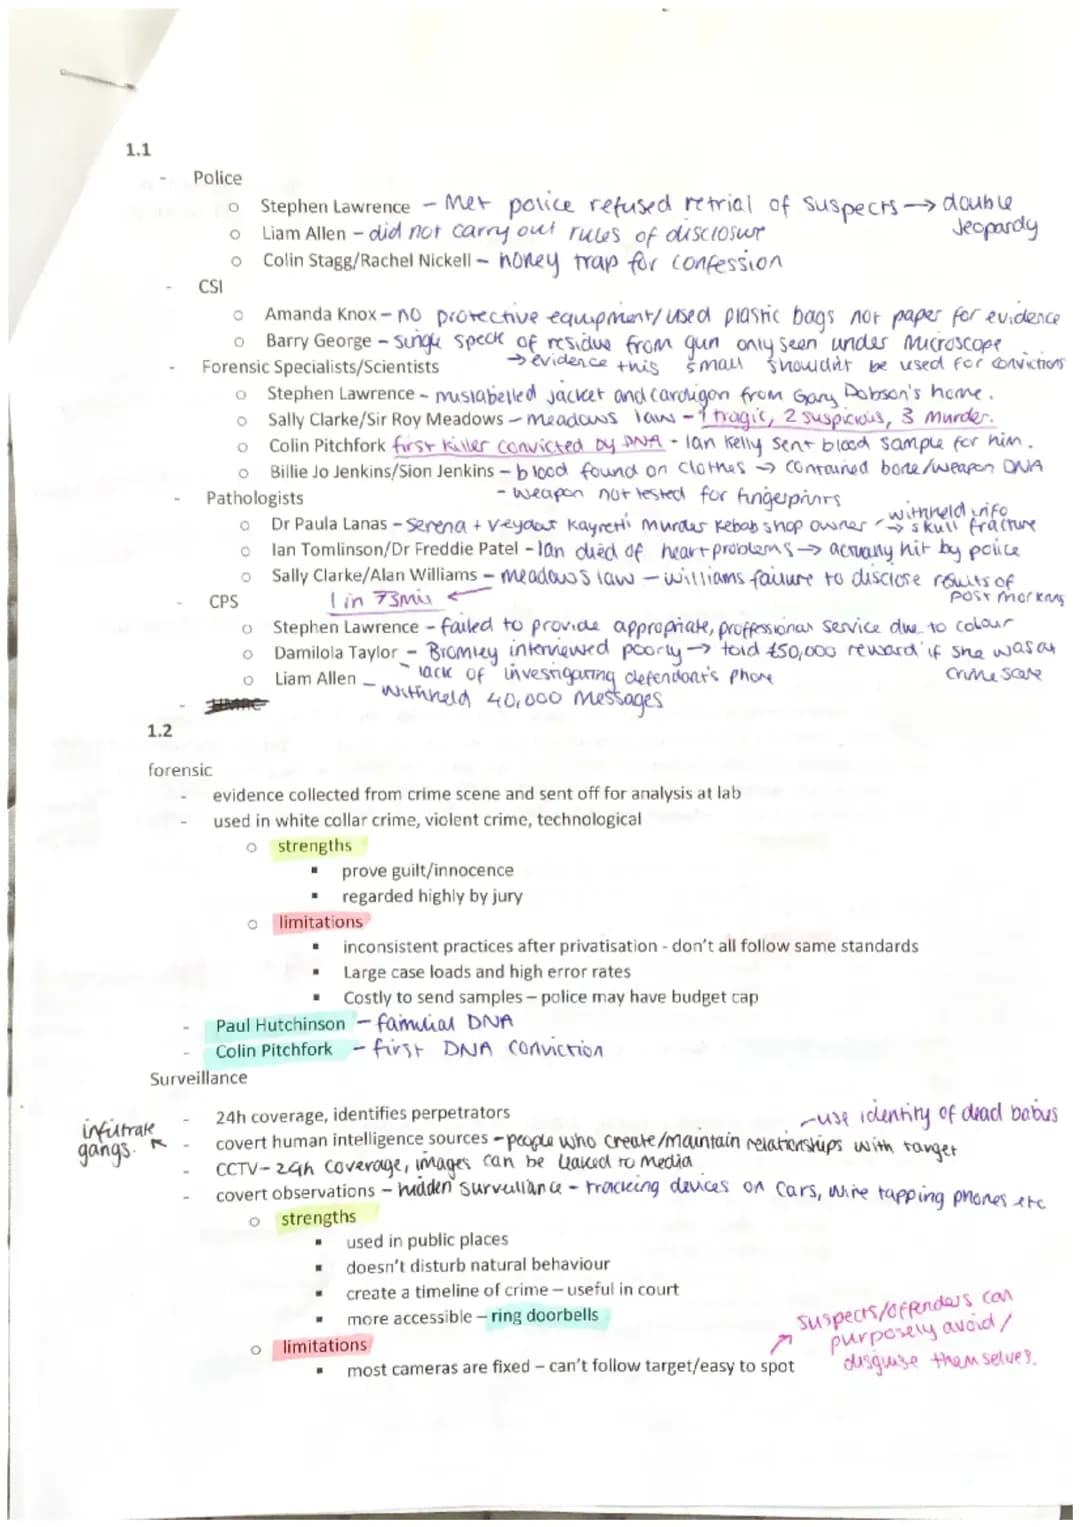 1.1
- Police
o Stephen Lawrence - Met police refused retrial of suspects → double Jeopardy
o Liam Allen - did not carry out rules of disclosure
o Colin Stagg/Rachel Nickell - honey trap for confession
- CSI
o Amanda Knox - no protective equipment/used plastic bags not paper for evidence
o Barry George - single speck of residue from gun only seen under microscope
→ evidence this small shouldn't be used for convictions
- Forensic Specialists/Scientists
o Stephen Lawrence - mislabelled jacket and cardigan from Gary Dobson's home.
o Sally Clarke/Sir Roy Meadows - meadows law - 1 tragic, 2 suspicious, 3 murder.
o Colin Pitchfork first killer convicted by DNA - Ian Kelly sent blood sample for him.
o Billie Jo Jenkins/Sion Jenkins - blood found on clothes → contained bone/weapon DNA
- weapon not tested for fingerprints
- Pathologists
withheld info
o Dr Paula Lanas - Serena + Veydat murder kebab shop owner → skull fracture
o Ian Tomlinson/Dr Freddie Patel - Ian died of heart problems → actually hit by police
o Sally Clarke/Alan Williams - meadows law - williams failure to disclose results of post
1 in 73mil ←
- CPS
o Stephen Lawrence - failed to provide appropriate, proffessional service due to colour
o Damilola Taylor - Bromley interviewed poorly → told £50,000 reward if she was at crime
o Liam Allen - lack of investigating defendant's phone
- Withheld 40,000 messages
- HMRC
1.2
forensic
- evidence collected from crime scene and sent off for analysis at lab
- used in white collar crime, violent crime, technological
o strengths
▪ prove guilt/innocence
▪ regarded highly by jury
o limitations
▪ inconsistent practices after privatisation - don't all follow same standards
▪ Large case loads and high error rates
▪ Costly to send samples – police may have budget cap
- Paul Hutchinson - familial DNA
- Colin Pitchfork - first DNA conviction
Surveillance
- 24h coverage, identifies perpetrators
- use identity of dead babies
infiltrate gangs. ↖
- covert human intelligence sources - people who create/maintain relationships with target
- CCTV - 24h coverage, images can be leaked to media
- covert observations - hidden surveillance - tracking devices on cars, wire tapping phones etc
o strengths
▪ used in public places
▪ doesn't disturb natural behaviour
▪ create a timeline of crime – useful in court
▪ more accessible – ring doorbells
o limitations
▪ most cameras are fixed – can't follow target/easy to spot
↗ suspects/offenders can
purposely avoid/
disguise themselves.